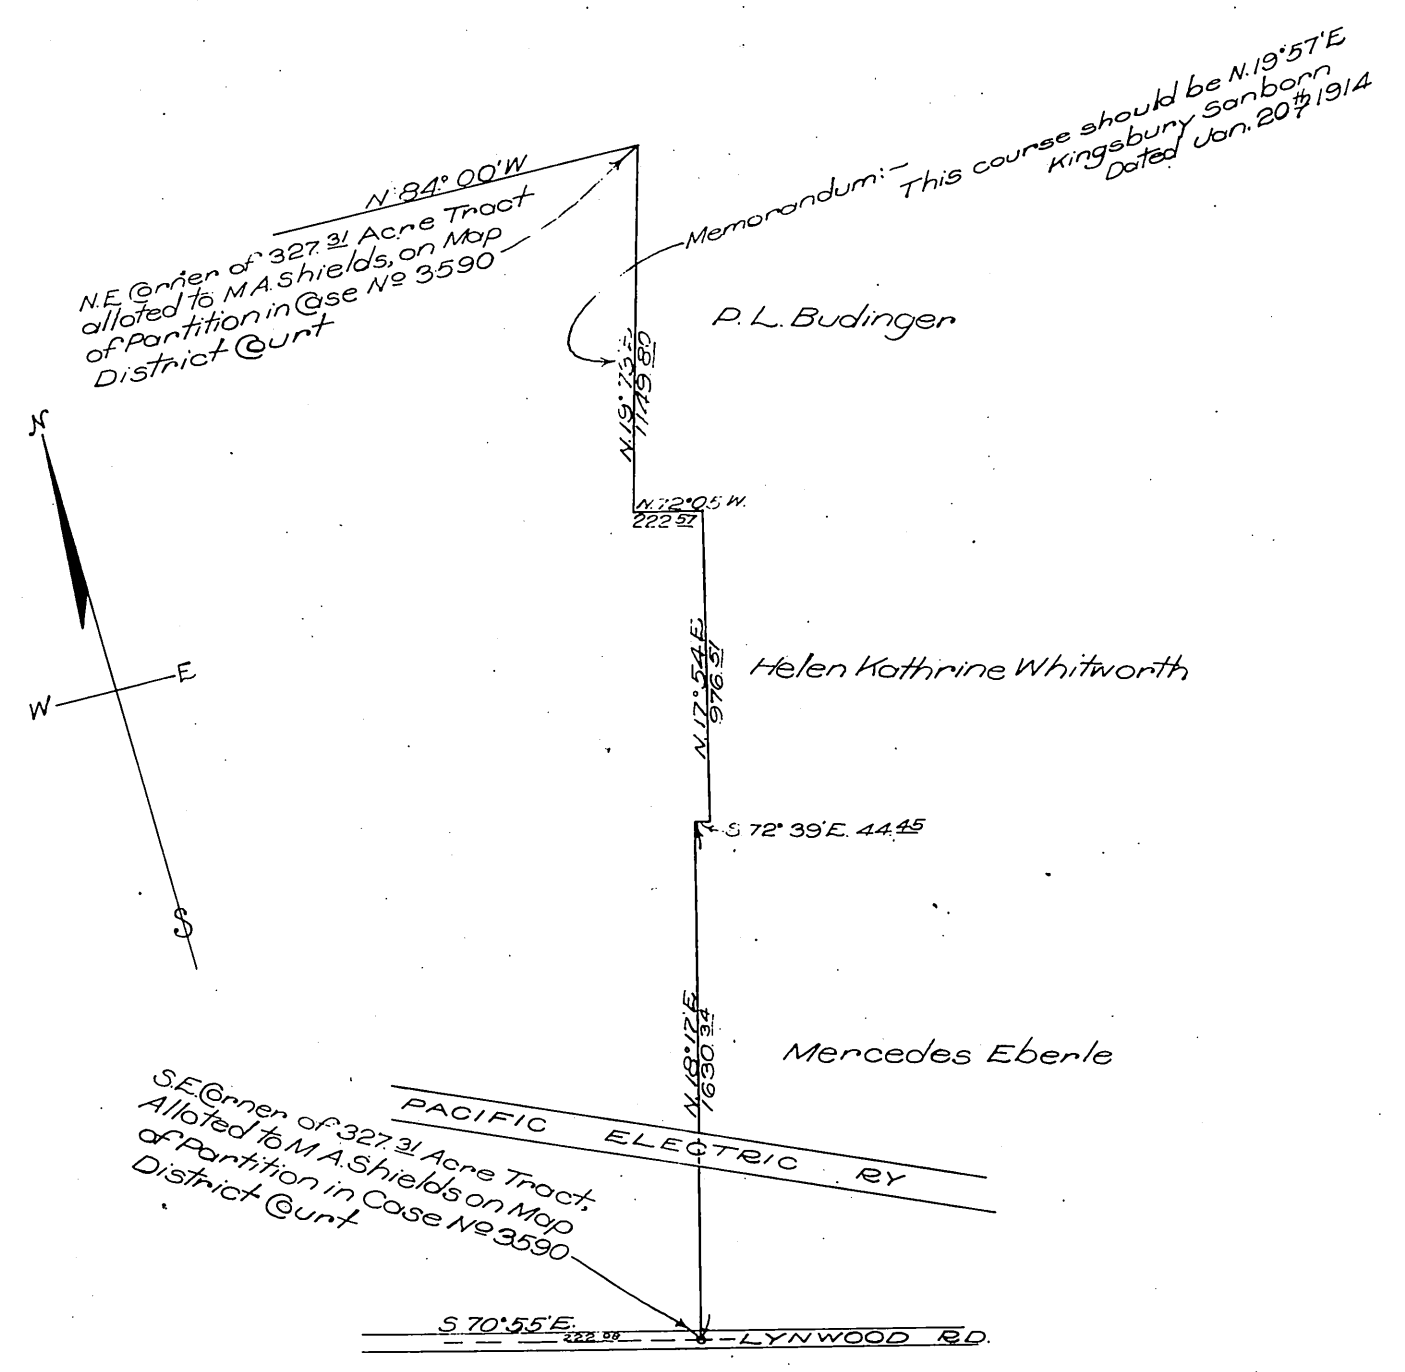 This course should be N.19°57'E
Kingsbury Sanborn
Dated Jan. 20th 1914
Memorandum:-
N 84° 00' W
N.E. Corner of 327.31 Acre Tract
alloted to M.A. Shields, on Map
of Partition in Case No 3590
District Court
P. L. Budinger
N. 19° 73' E.
1149.80
N
N. 72° 05 W.
222.57
N. 17° 54 E.
976.51
Helen Kathrine Whitworth
E
W
S 72° 39' E. 44.45
S
N. 18° 17' E.
1630.34
Mercedes Eberle
PACIFIC ELECTRIC RY
S.E. Corner of 327.31 Acre Tract,
Alloted to M A. Shields on Map
of Partition in Case No 3590
District Court
S 70° 55' E.
LYNWOOD RD.